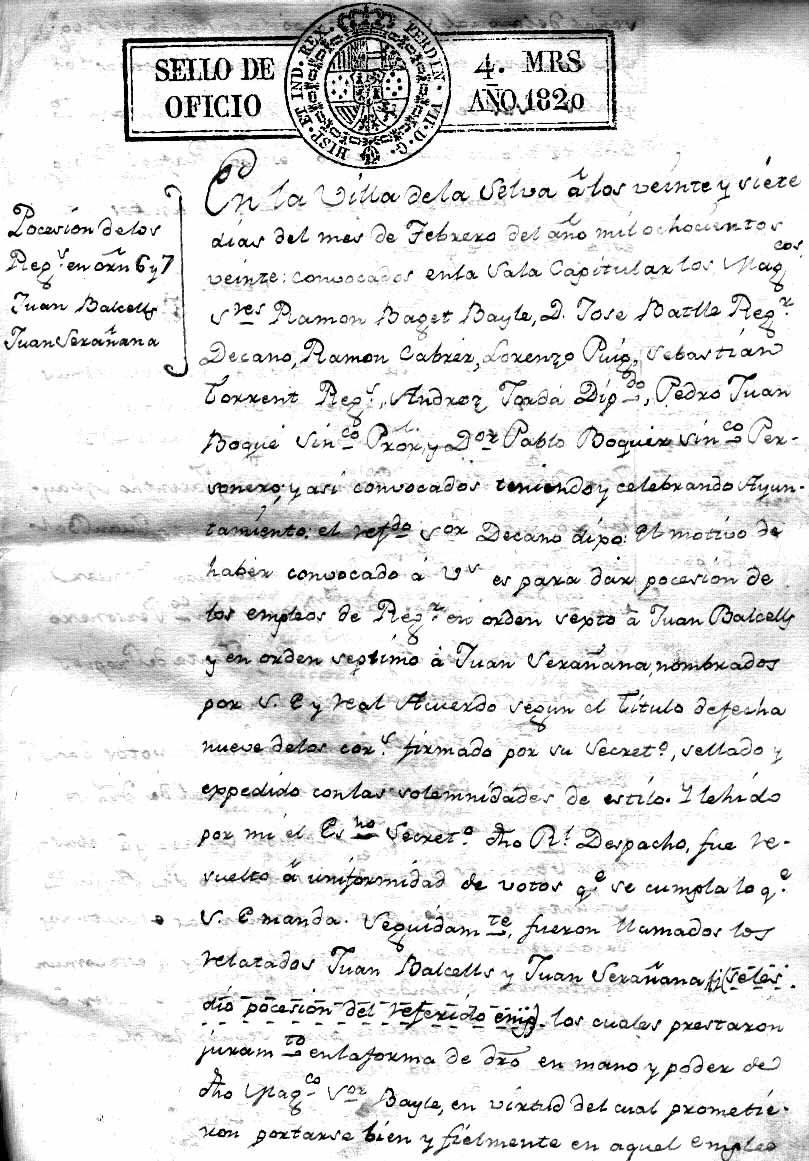 SELLO DE
OFICIO
HISP. ET IND. REX. FERDIN. VII. D. G.
4. MRS
AÑO, 1820
Pocesión de los
Regs. en orñ 6 y 7
Juan Balcells
Juan Serañana
En la Villa dela Selva á los veinte y siete
días del mes de Febrero del año mil ochocientos
veinte: convocados enla Sala Capitular los Magcos.
Sres Ramon Baget Bayle, D. Jose Batlle Regr.
Decano, Ramon Cabrér, Lorenzo Puig, Sebastián
Torrent Regs., Andrez Jordá Dipdo, Pedro Juan
Boqué Sinco Prõl. y Dor Pablo Boquér Sinco Per-
sonero; y así convocados teniendo y celebrando Ayun-
tamiento: el refdo Sor Decano dipo: El motivo de
haber convocado á Vs es para dar pocesión de
los empleos de Regr. en orden sexto á Juan Balcells
y en orden septimo à Juan Serañana, nombrados
por S. E y real Acuerdo segun el Título defecha
nueve delos cors. firmado por su Secreto, sellado y
expedido conlas solemnidades de estilo. Y lehido
por mi el Esno Secreto. dho Rl. Despacho, fue re-
suelto á uniformidad de votos qe. se cumpla lo qe.
S. E manda. Seguidamte, fueron llamados los
relatados Juan Balcells y Juan Serañana (seles
dio pocesión del referido) los cuales prestaron
juramto enlaforma de dro en mano y poder de
dho Magco Sor Bayle, en virtud del cual prometié-
ron portarse bien y fielmente en aquel empleo